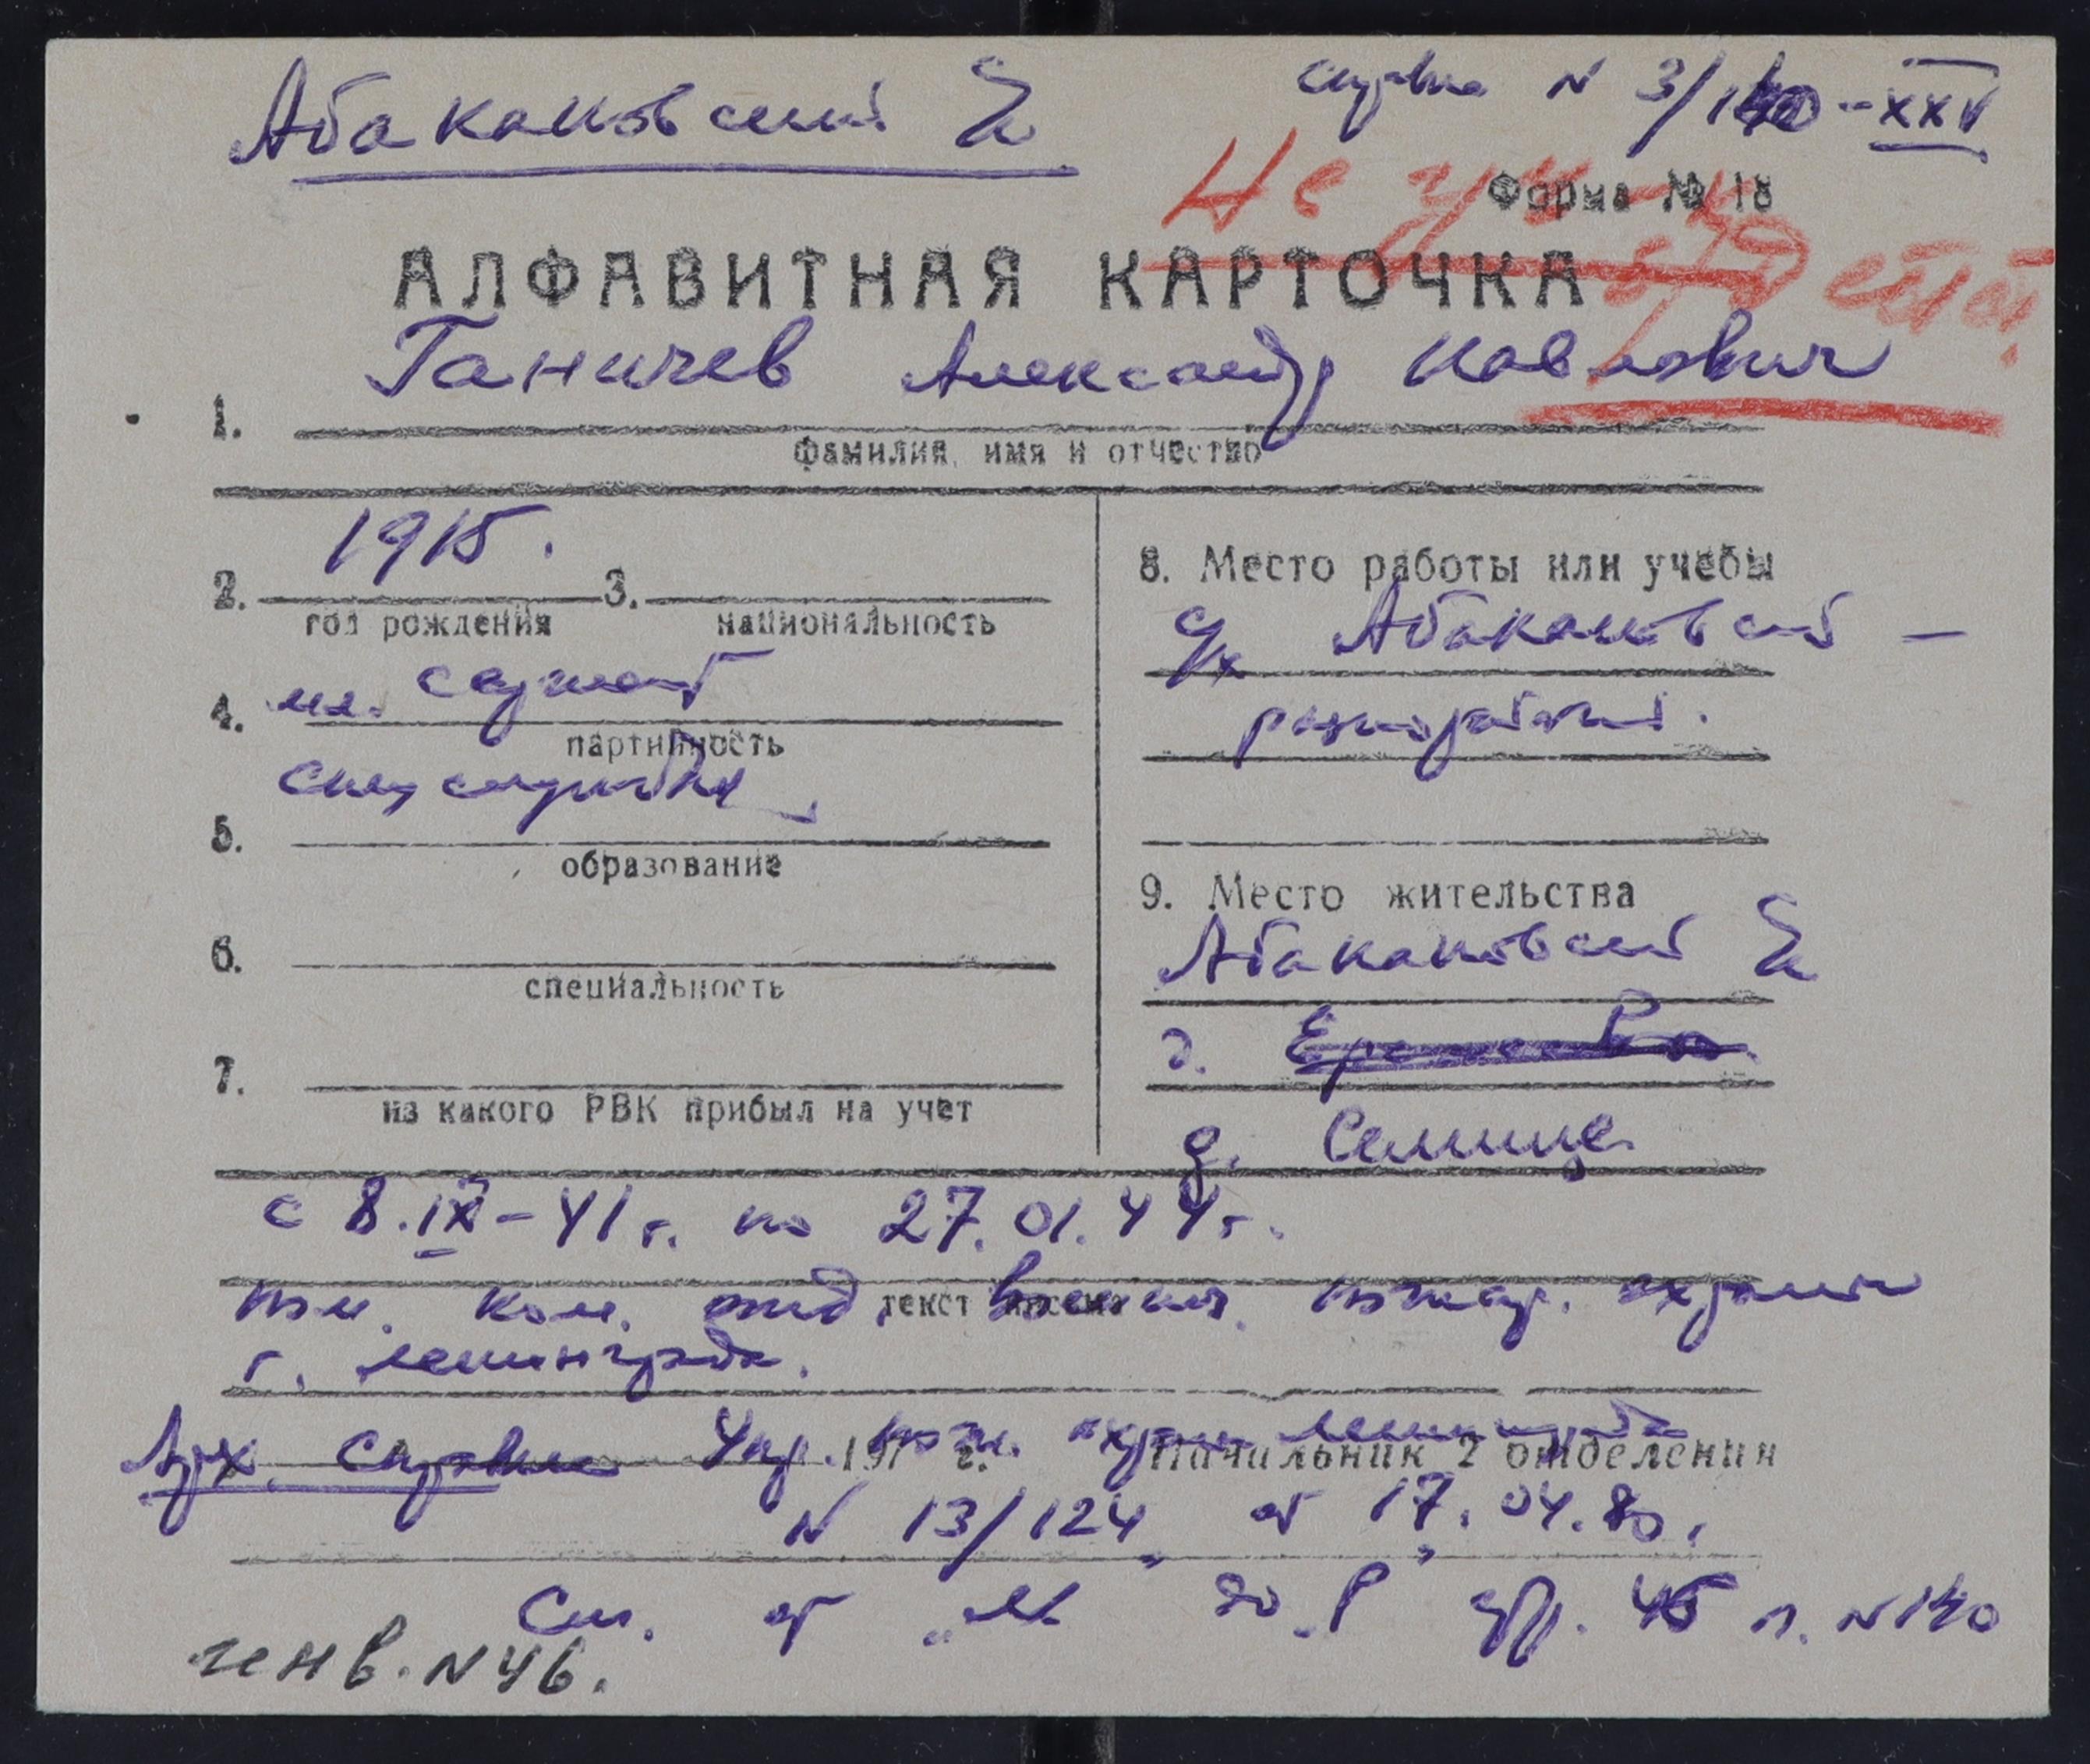 Абакановский
справка N 3/140-XXV
Не
Форма № 18
АЛФАВИТНАЯ КАРТОЧКА
Ганичев Александр Павлович
1.
фамилия, имя и отчество
1915.
2. 3.
год рождения национальность
мл. сержант
4.
партийность
5.
образование
6.
специальность
7.
из какого РВК прибыл на учет
8. Место работы или учебы
Абакановский -
разнорабочий.
9. Место жительства
Абакановский
д.
д. Селище
с 8.IX-41 г. по 27.01.44 г.
пом. ком. отд. пожар. охраны
текст
г. Ленинграда.
Арх. справка Упр. пож. охраны Ленинграда
197 г. Начальник 2 отделения
N 13/124 от 17.04.80.
См. от "М до Р" стр. 45 п. N 140
ген в. N 46.